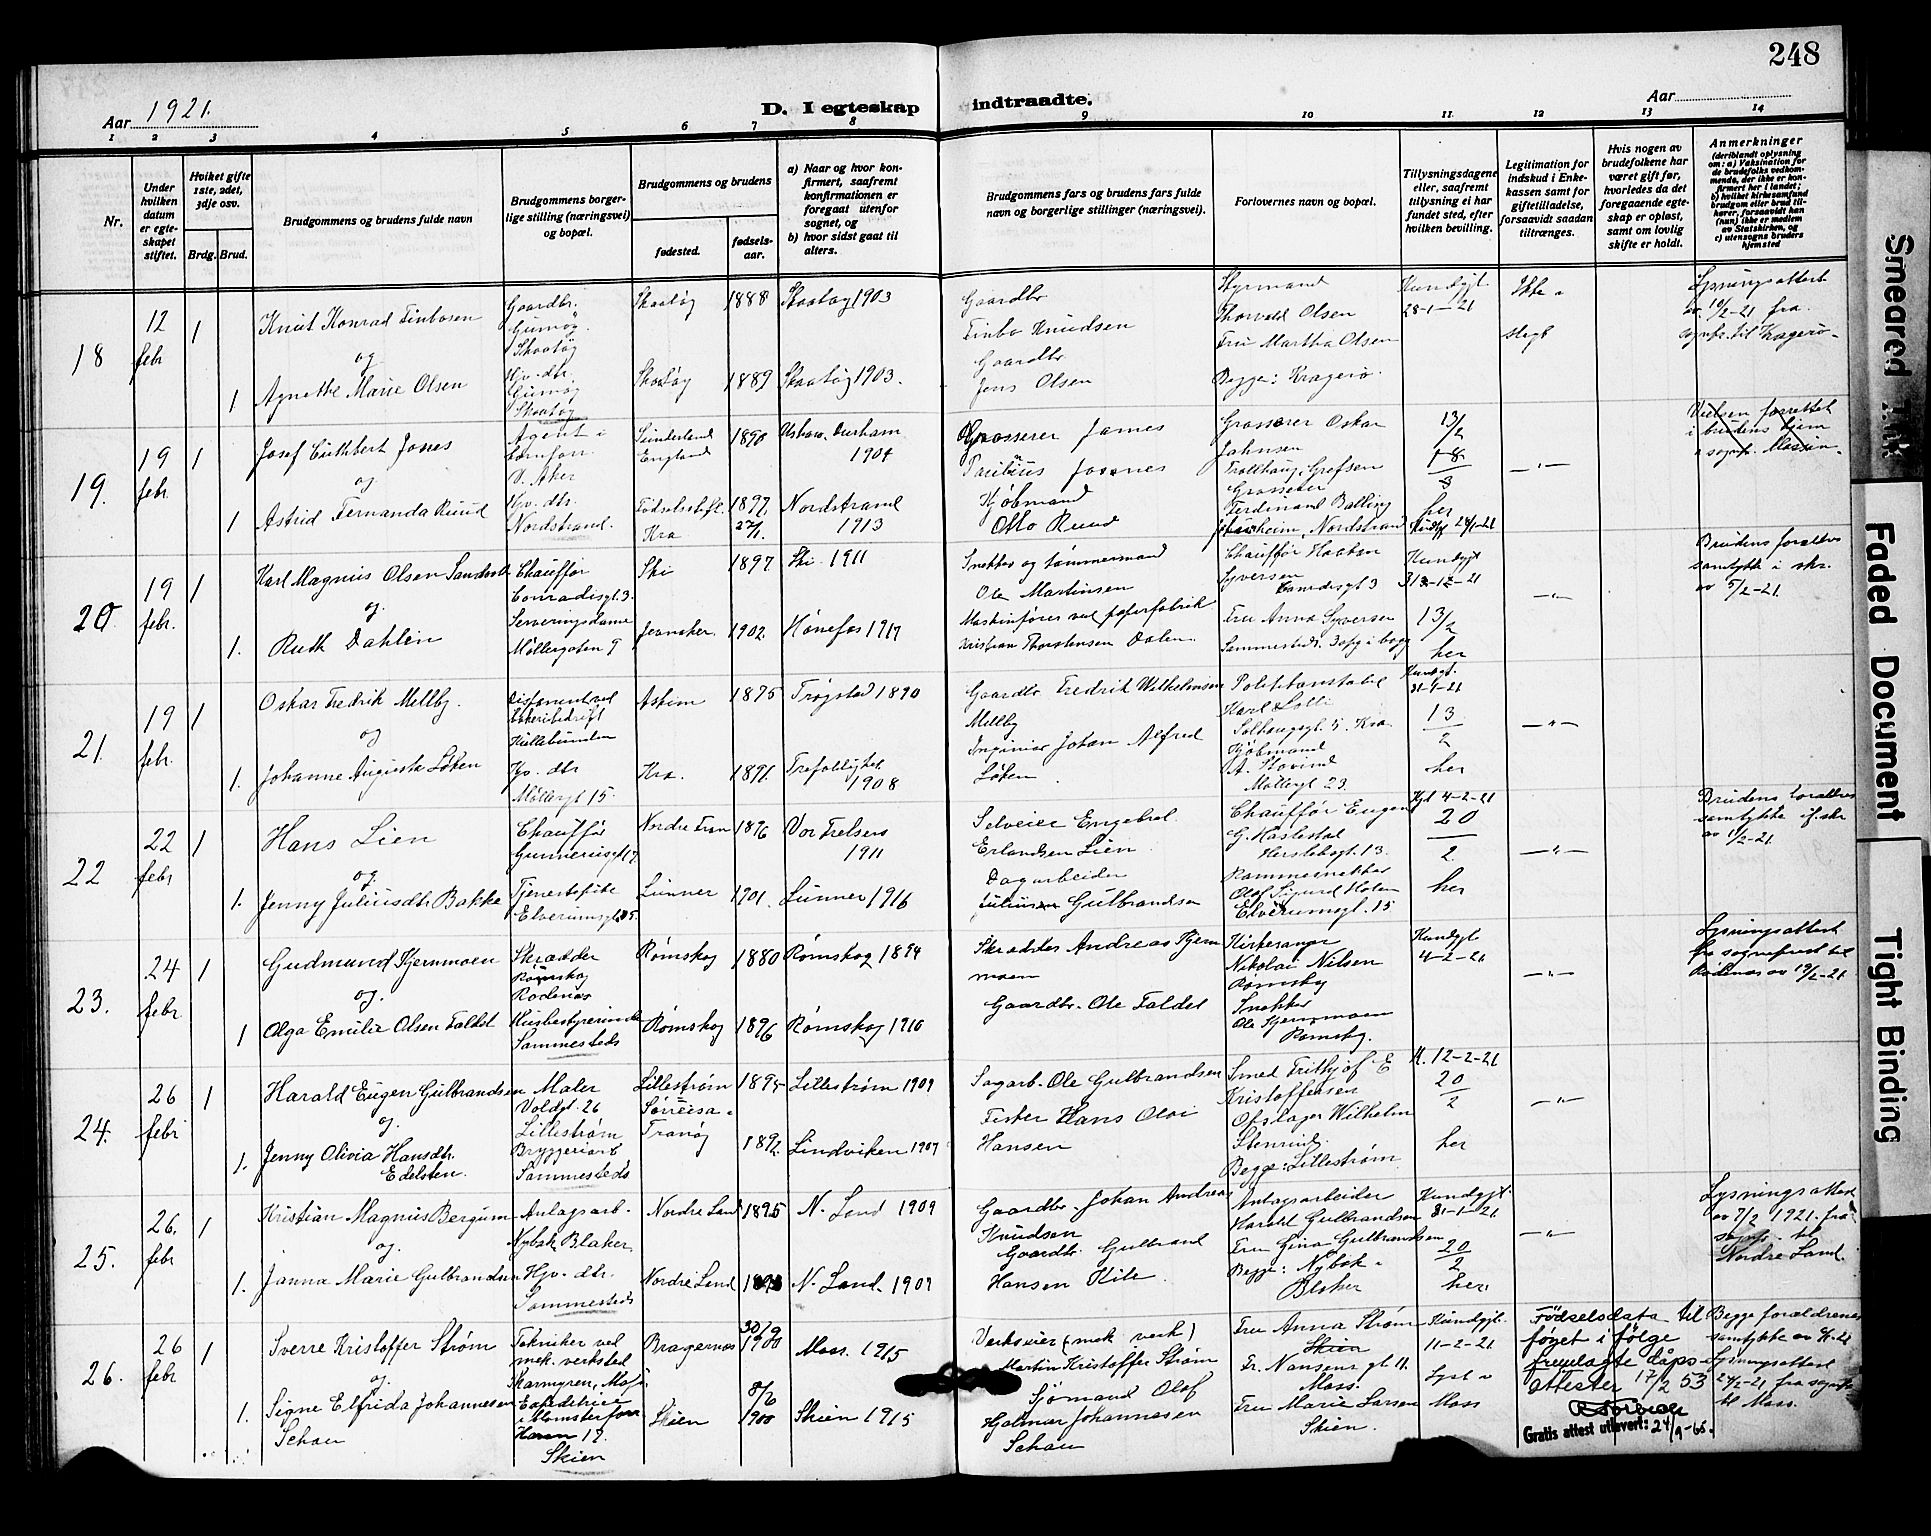 248
Aar 1921.
D. I egteskap indtraadte.
Aar
1 2 3 4 5 6 7 8 9 10 11 12 13 14
Nr.
Under hvilken datum er egteskapet stiftet.
Hviket gifte 1ste, 2det, 3dje osv.
Brdg. Brud.
Brudgommens og brudens fulde navn
Brudgommens borgerlige stilling (næringsvei) og bopæl.
Brudgommens og brudens
fødested.
fødselsaar.
a) Naar og hvor konfirmert, saafremt konfirmationen er foregaat utenfor sognet, og
b) hvor sidst gaat til alters.
Brudgommens fars og brudens fars fulde navn og borgerlige stillinger (næringsvei).
Forlovernes navn og bopæl.
Tillysningsdagene eller, saafremt tillysning ei har fundet sted, efter hvilken bevilling.
Legitimation for indskud i Enkekassen samt for giftetilladelse, forsaavidt saadan tiltrænges.
Hvis nogen av brudefolkene har været gift før, hvorledes da det foregaaende egteskap er opløst, samt om lovlig skifte er holdt.
Anmerkninger
(deriblandt oplysning om: a) Vaksination for de brudefolks vedkommende, der ikke er konfirmert her i landet; b) hvilket kirkesamfund brudgom eller brud tilhører, forsaavidt han (hun) ikke er medlem av Statskirken, og c) utensogns bruders hjemsted
18 12 febr 1 Knut Konrad Finbosen Gaardbr. Gumøy Skaatøy Skaatøy 1888 Skaatøy 1903 Gaardbr Finbo Knudsen Styrmand Thorvald Olsen Kundgjt 28-1-21 Ikke Lysningsattest av 10/2-21 fra sognpr. til Kragerø
og
1 Agnethe Marie Olsen Hjv. dtr. Gumøy Skaatøy Skaatøy 1889 Skaatøy 1903. Gaardbr Jens Olsen Fru Martha Olsen Begge: Kragerø. slegt
19. 19 febr 1 Josef Cuthbert Jones Agent V. Aker Sunderland England 1890 Durham 1904 Grosserer James Grosserer Oskar Johnsen Trolhaug, Grefsen 13/2
og
1 Astrid Fernanda Ruud Hjv. dtr. Nordstrand. Fødselsstift. Kra 1897 22/1. Nordstrand 1913 Kjøbmand Otto Ruud Grosserer Ferdinand Balling Nordstrand her
20. 19 febr. 1 Karl Magnus Olsen Chauffør Conradisgt. 3. Ski 1897 Ski 1911 Snekker og tømmermand Ole Martinsen Chauffør Haakon Syversen Conradisgt 3 Kundgjt Brudens foreldres samtykke i skr. av 5/2-21
og
1. Ruth Dahlin Serveringsdame Møllergaten 9 Jevnaker 1902. Hønefos 1917 Maskinfører ved papirfabrik Kristian Thorstensen Dalen. Fru Anna Syversen Sammesteds. 13/2 her
21. 19 febr. 1 Oskar Fredrik Mellby. Disponent ved Kullebunden Askim 1875 Trøgstad 1890 Gaardbr Fredrik Wilhelmsen Mellby Politikonstabel Karl Kra. Kundgjt. 13/2
og
1. Johanne Augusta Løken Hjv. dtr Møllergt 15. Kra. 1891. Trefoldighet 1908 Ingeniør Johan Alfred Løken Kjøbmand A. Hovind Møllergt 23. her
22 22 febr 1 Hans Lien Chauffør Gunnerusgt 17 Nordre Fron 1896 Vor Frelsers 1911 Selveier Engebret Erlandsen Lien Chauffør Eugen G. Haslestad Herslebsgt. 13. Kgt 4-2-21 20/2 her Brudens foreldres samtykke i f. skr av 1/2-21
og
1. Jenny Juliusdtr Bakke Tjenestepike Elverumsgt 15. Lunner 1901. Lunner 1916 Dagarbeider Julius Gulbrandsen Olaf Sigurd Holen Elverumsgt. 15
23. 24 febr 1 Gudmund Kjernmoen Skrædder Rømskog Rødenes Rømskog 1880 Rømskog 1894 Skrædder Andreas Kjernmoen Kirkesanger Nikolai Nilsen Rømskog Kundgjt 4-2-21 Lysningsattest fra sogneprest til Rødenes av 19/2-21
og.
1 Olga Emilie Olsen Taldet Husbestyrerinde Sammesteds Rømskog 1896 Rømskog 1910 Gaardbr. Ole Taldet Snekker Ole Kjernmoen Rømskog.
24. 26 febr 1 Harald Eugen Gulbrandsen Maler Voldgt. 26 Lillestrøm Lillestrøm 1895 Lillestrøm 1909 Sagarb. Ole Gulbrandsen Smed Frithjof E Kristoffersen K. 12-2-21 20/2 her
og.
1. Jenny Olivia Hansdtr. Edelsten. Bryggeriarb Sammesteds Sørreisa Tranøy 1892. Lindviken 1907 Fisker Hans Olai Hansen Opslager Wilhelm Stenrud. Begge: Lillestrøm
25. 26. febr 1 Kristian Magnus Bergum Anlagsarb. Nybak Blaker Nordre Land 1895 N. Land 1909 Gaardbr. Johan Andreas Knudsen Anlagsarbeider Harald Gulbrandsen Kundgjt. 31-1-21 20/2 her. Lysningsattest av 7/2 1921. fra sognpr. til Nordre Land.
og.
1. Janna Marie Gulbrandsen Hjv. dtr. Sammesteds Nordre Land N. Land. 1909 Gaardbr. Gulbrand Hansen Kile. Fru Gina Gulbrandsen Begge: Nybak Blaker
26. 26 febr 1 Sverre Kristoffer Strøm Tekniker ved mek. verksted Bragernes 30/9 1900 Moss. 1915 Verkseier (mek. verk) Martin Kristoffer Strøm Fru Anna Strøm Skien Fr. Nansens gt 11. Moss. Kundgjt. 11-2-21 Lyst Moss Fødselsdata tilføyet i følge fremlagte dåpsattester 17/2 53 Begge forældrenes samtykke Lysningsattest fra sognpr. til Moss.
og
1. Signe Elfrida Johannesen Schau Expeditrice Skien Skien 8/6 1900 Skien 1915 Sjømand Olaf Hjalmar Johannesen Schau Fru Marie Larsen Skien.
Gratis attest utlevert: 24/9-65.
Smeared Ink
Faded Document
Tight Binding